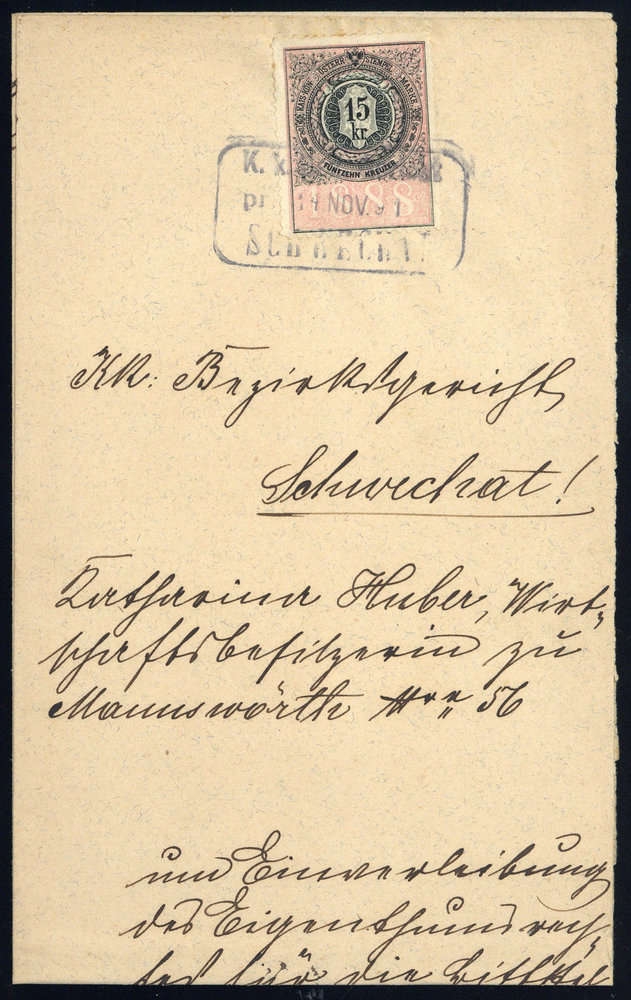 KAIS. KÖN. ÖSTERR. STEMPEL MARKE
15
kr.
FÜNFZEHN KREUZER
1888
K. K.
14 NOV. 91
SCHWECHAT
KK: Bezirksgericht
Schwechat!
Katharina Huber, Wirt-
schaftsbesitzerin zu
Mannswörth Nro 56
um Einverleibung
des Eigenthumsrech-
tes für die